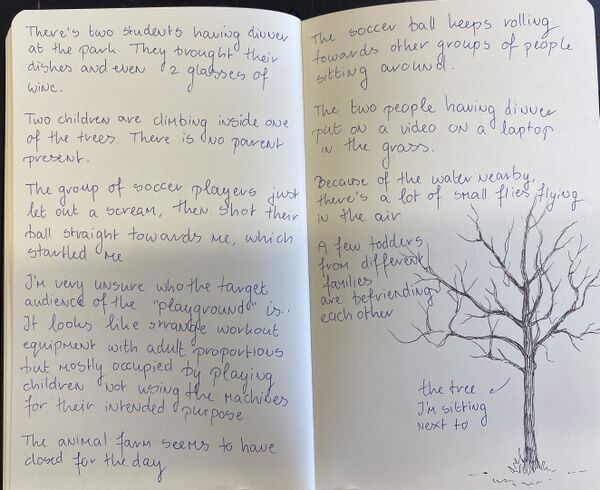 There's two students having dinner
at the park. They brought their
dishes and even 2 glasses of
wine.
Two children are climbing inside one
of the trees. There is no parent
present.
The group of soccer players just
let out a scream, then shot their
ball straight towards me, which
startled me
I'm very unsure who the target
audience of the "playground" is..
It looks like strange workout
equipment with adult proportions
but mostly occupied by playing
children not using the machines
for their intended purpose
The animal farm seems to have
closed for the day
The soccer ball keeps rolling
towards other groups of people
sitting around.
The two people having dinner
put on a video on a laptop
in the grass.
Because of the water nearby,
there's a lot of small flies flying
in the air
A few toddlers
from different
families
are befriending
each other
the tree
I'm sitting
next to